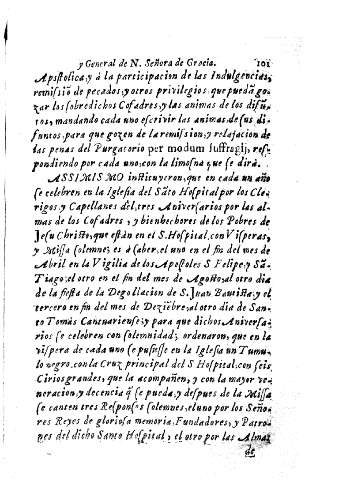 y General de N. Señora de Gracia. 101
Apostolica, y à la participacion de las Indulgencias,
remissiõ de pecados, y otros privilegios que puedã go-
zar los sobredichos Cofadres, y las animas de los difũ-
tos, mandando cada uno escrivir las animas de sus di-
funtos, para que gozen de la remission, y relajacion de
las penas del Purgatorio per modum suffragij, res-
pondiendo por cada uno, con la limosna que se dirà.
ASSIMISMO instituyeron, que en cada un año
se celebren en la Iglesia del Sãto Hospital por los Cle-
rigos y Capellanes del, tres Aniversarios por las al-
mas de los Cofadres, y bienhechores de los Pobres de
Jesu Christo, que estàn en el S. Hospital, con Visperas,
y Missa solemne; es à saber, el uno en el fin del mes de
Abril en la Vigilia de los Apostoles S Felipe, y Sã-
Tiago; el otro en el fin del mes de Agosto, al otro dia
de la fiesta de la Degollacion de S. Juan Bautista, y el
tercero en fin del mes de Deziẽbre, al otro dia de San-
to Tomàs Cantuariense; y para que dichos Aniversa-
rios se celebren con solemnidad, ordenaron, que en la
vispera de cada uno se pusiesse en la Iglesia un Tumu-
lo negro, con la Cruz principal del S Hospital, con seis
Cirios grandes, que la acompañen, y con la mayor ve-
neracion, y decencia q̃ se pueda, y despues de la Missa
se canten tres Responsos solemnes, el uno por los Seño-
res Reyes de gloriosa memoria, Fundadores, y Patro-
nes del dicho Santo Hospital, el otro por las Almas
de